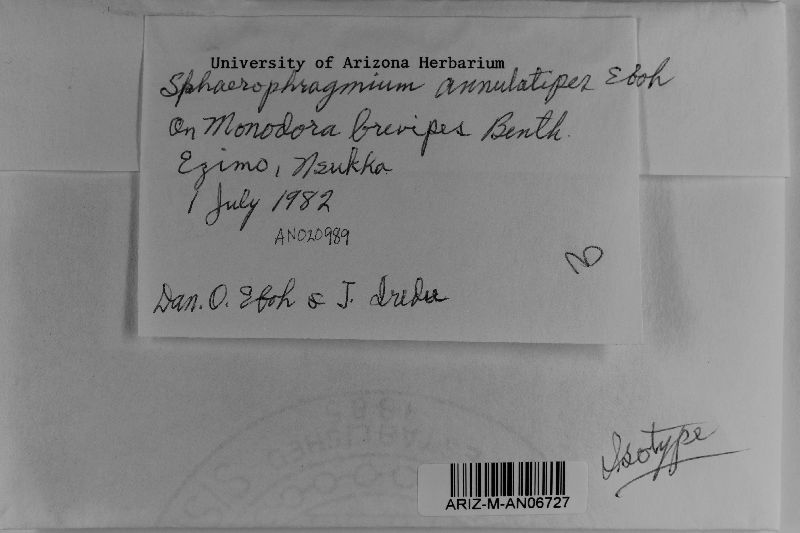 University of Arizona Herbarium
Sphaerophragmium annulatipes Eboh
On Monodora brevipes Benth.
Ezimo, Nsukka
1 July 1982
AN020989
Dan. O. Eboh & J.
Isotype
ARIZ-M-AN06727